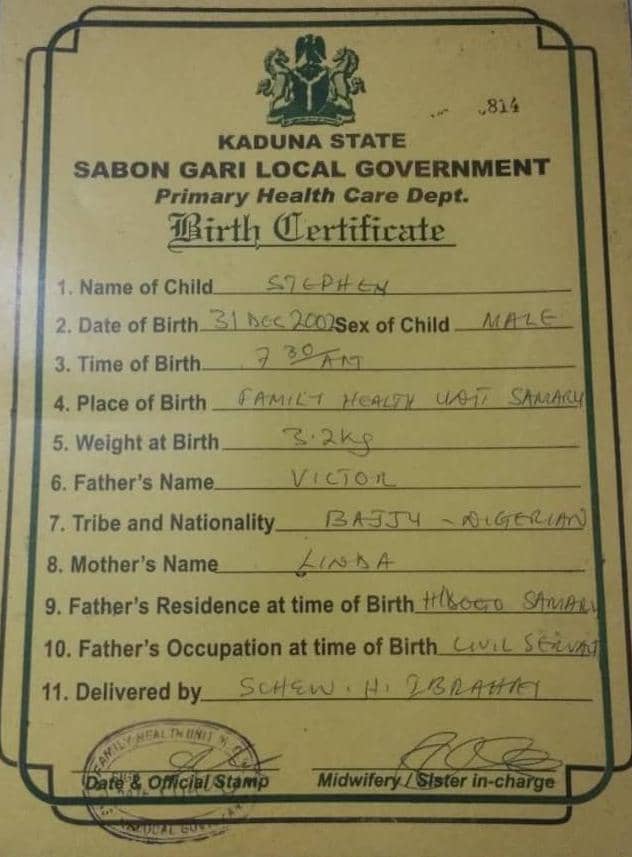 814
KADUNA STATE
SABON GARI LOCAL GOVERNMENT
Primary Health Care Dept.
Birth Certificate
1. Name of Child STEPHEN
2. Date of Birth 31 DEC 2002 Sex of Child MALE
3. Time of Birth 7 30/AM
4. Place of Birth FAMILY HEALTH UNIT SAMARU
5. Weight at Birth 3.2kg
6. Father's Name VICTOR
7. Tribe and Nationality BAJJU - NIGERIAN
8. Mother's Name LINDA
9. Father's Residence at time of Birth SAMARU
10. Father's Occupation at time of Birth CIVIL SERVANT
11. Delivered by SCHEW. H. IBRAHIM
FAMILY HEALTH UNIT
Date & Official Stamp Midwifery / Sister in-charge